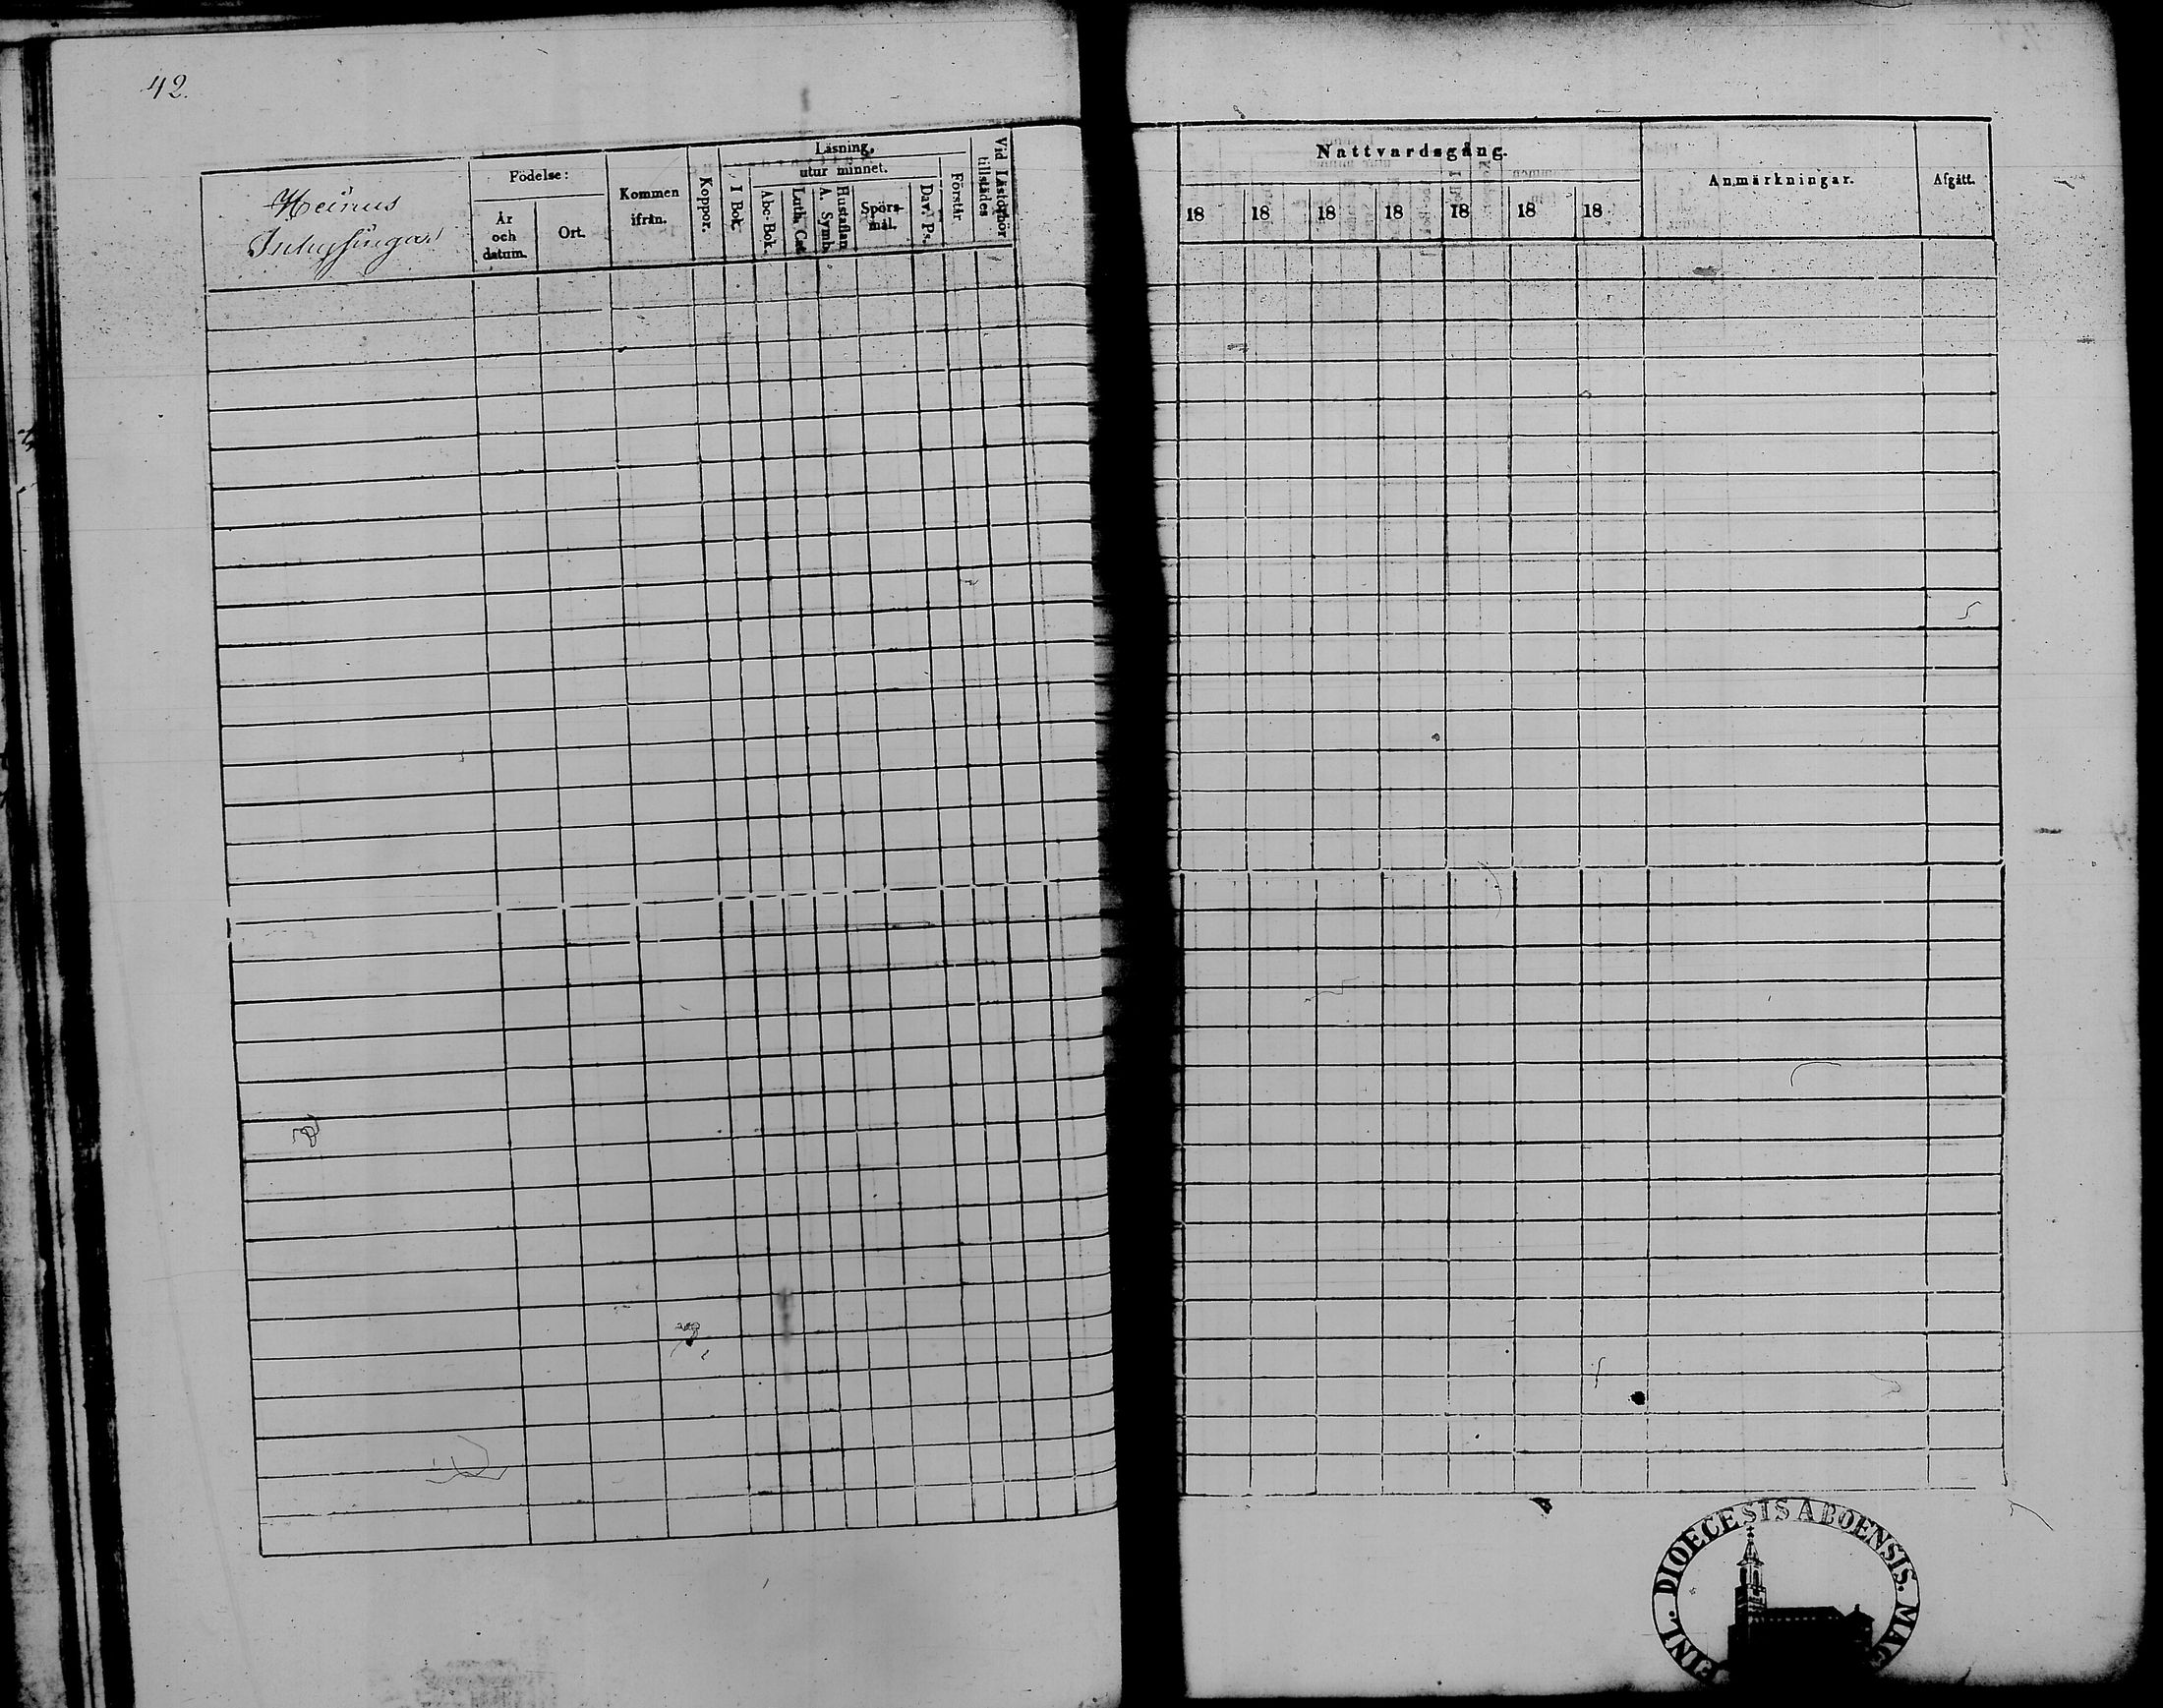 42.
Heinus
Inhysingar
Födelse:
År
och
datum.
Ort.
Kommen
ifrån.
Koppor.
Läsning.
I Bok.
utur minnet.
Abc-Bok.
Luth. Cat.
Hustaflan
A. Symb.
Spörs-
mål.
Dav. Ps.
Förstår.
Vid Läsförhör
tillstädes
Nattvardsgång.
18 18 18 18 18 18 18
Anmärkningar.
Afgått.
DIOECESIS ABOENSIS. MAG